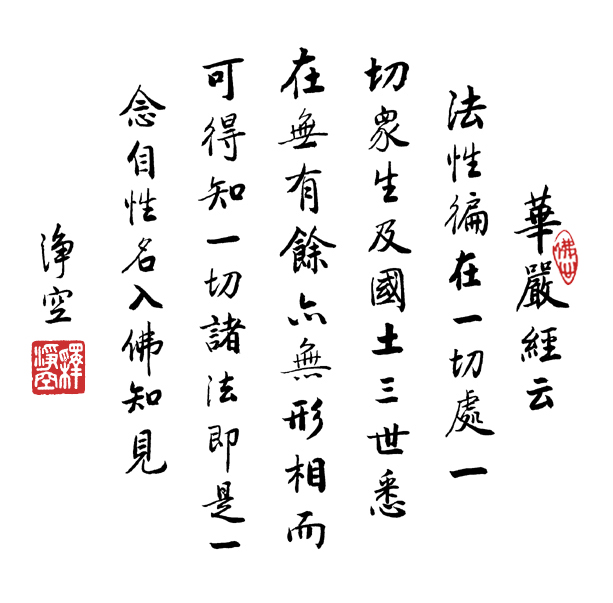 華嚴經云
法性徧在一切處一
切眾生及國土三世悉
在無有餘亦無形相而
可得知一切諸法即是一
念自性名入佛知見
淨空
釋淨空